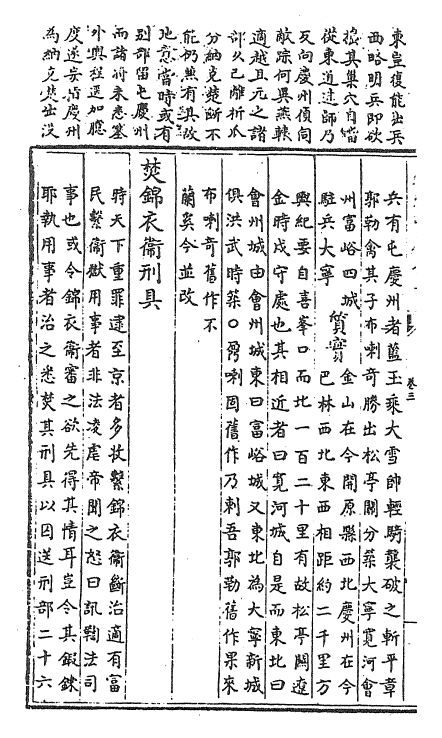 東豈復能出兵
西略明兵即欲
搗其巢穴自當
從東道進師乃
反向慶州偵伺
敵踪何異燕轅
適越且元之諸
部久已離析瓜
分納克楚斷不
能仍有其故
地意當時或有
別部留屯慶州
而諸將未悉塞
外輿程遥加臆
度遂妄指慶州
為納克楚出没
卷三
兵有屯慶州者藍玉乘大雪帥輕騎襲破之斬平章
郭勒禽其子布喇奇勝出松亭關分築大寧寬河會
州富峪四城
駐兵大寧
質實
金山在今開原縣西北慶州在今
巴林西北東西相距約二千里方
輿紀要自喜峯口而北一百二十里有故松亭關遼
金時戍守處也其相近者曰寬河城自是而東北曰
會州城由會州城東曰富峪城又東北為大寧新城
俱洪武時築○鼐喇固舊作乃剌吾郭勒舊作果來
布喇奇舊作不
蘭奚今並改
焚錦衣衞刑具
時天下重罪逮至京者多收繫錦衣衞斷治適有富
民繫衞獄用事者非法凌虐帝聞之怒曰訊鞫法司
事也或令錦衣衞審之欲先得其情耳豈令其鍛鍊
耶執用事者治之悉焚其刑具以囚送刑部二十六